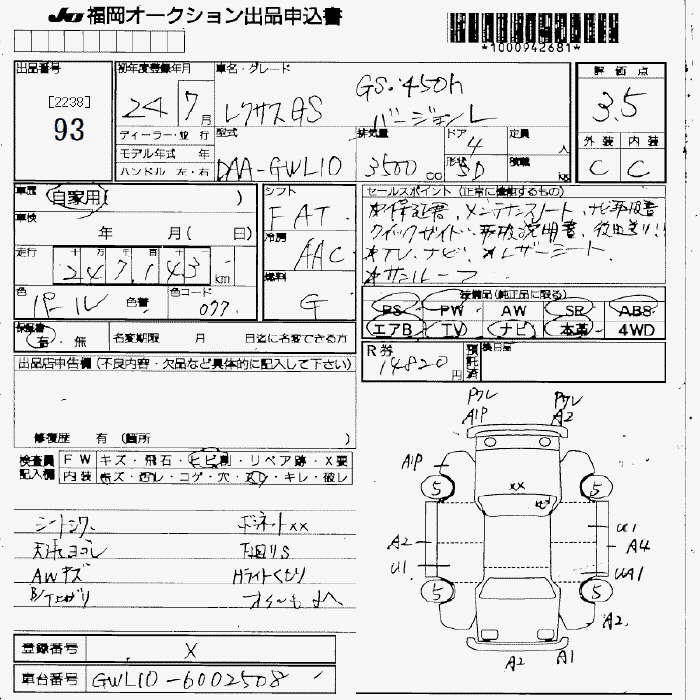 JU 福岡オークション出品申込書
*1000942681*
出品番号
[2238]
93
初年度登録年月
24 7 月
車名・グレード
レクサスGS GS・450h バージョンL
ディーラー・並 行
モデル年式 年
ハンドル 左・右
型式
DAA-GWL10
排気量
3500 CC
ドア
4
形状
SD
定員
人
積載
kg
評 価 点
3.5
外 装 内 装
C C
車歴
自家用( )
車検
年 月( 日)
走行
十 万 千 百 十
247,143 km
色
パール 色替
色コード
077
シフト
FAT
冷房
AAC
燃料
G
セールスポイント (正常に機能するもの)
*保証書、メンテナンスノート、ナビ取扱書
クイックガイド、取扱説明書、後日送り!!
*TV、ナビ、*レザーシート
*サンルーフ
装備品(純正品に限る)
PS PW AW SR ABS
エアB TV ナビ 本革 4WD
保証書
有・無
名変期限 月 日迄に名変できる方
R券
14820 円
預託済
検査員
出品店申告欄 (不良内容・欠品など具体的に記入して下さい)
修復歴 有 (箇所 )
検査員
記入欄
FW キズ・飛石・ヒビ割・リペア跡・X要
内装 キズ・西レ・コゲ・穴・スレ・キレ・破レ
シートシワ ボンネットXX
天張ヨゴレ 下廻りS
AWキズ Hライトくもり
登録番号
X
車台番号
GWL10-6002508
ワレ
A1P
ワレ
A2
A1P
5
5
XX
U1
A2
A4
U1
UA1
5
5
A2
A2
A1